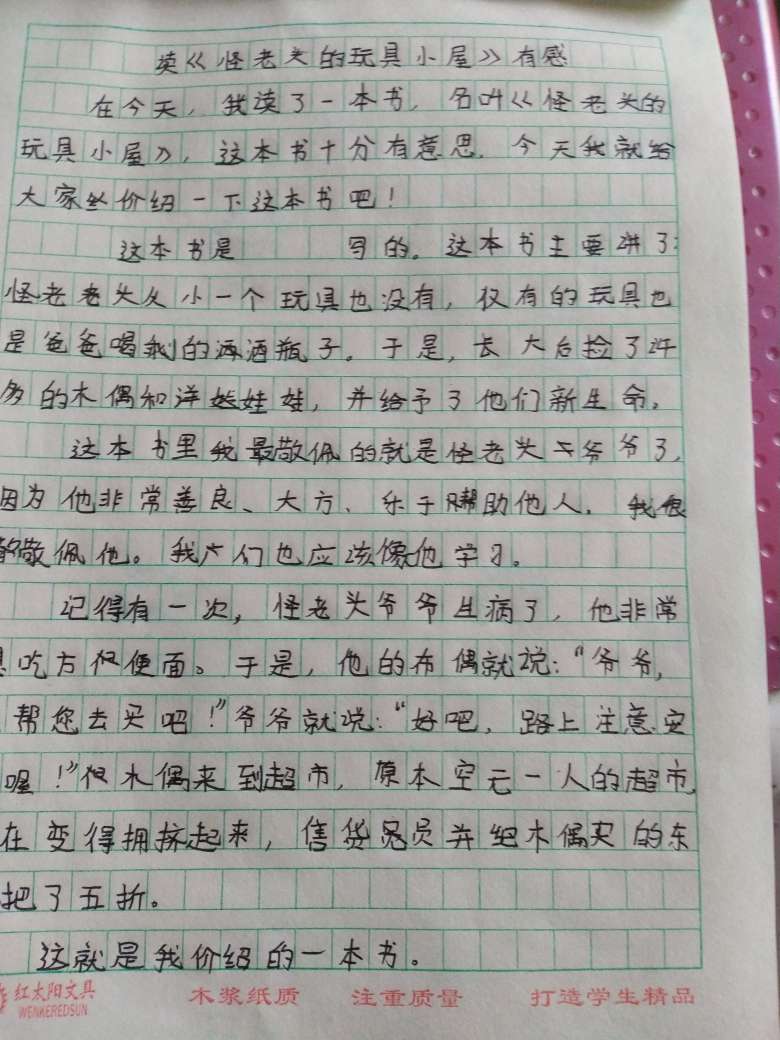 读《怪老头的玩具小屋》有感
在今天，我读了一本书，名叫《怪老头的
玩具小屋》，这本书十分有意思，今天我就给
大家介绍一下这本书吧！
这本书是 写的。这本书主要讲了：
怪老头从小一个玩具也没有，仅有的玩具也
是爸爸喝剩的酒瓶子。于是，长大后捡了许
多的木偶和洋娃娃，并给予了他们新生命。
这本书里我最敬佩的就是怪老头爷爷了，
因为他非常善良、大方、乐于帮助他人，我很
敬佩他。我们也应该像他学习。
记得有一次，怪老头爷爷生病了，他非常
吃方便面。于是，他的布偶就说：“爷爷，
帮您去买吧！”爷爷就说：“好吧，路上注意安
喔！”木偶来到超市，原本空无一人的超市，
在变得拥挤起来，售货员并给木偶买的东
把了五折。
这就是我介绍的一本书。
红太阳文具
WENKEREDSUN
木浆纸质 注重质量 打造学生精品